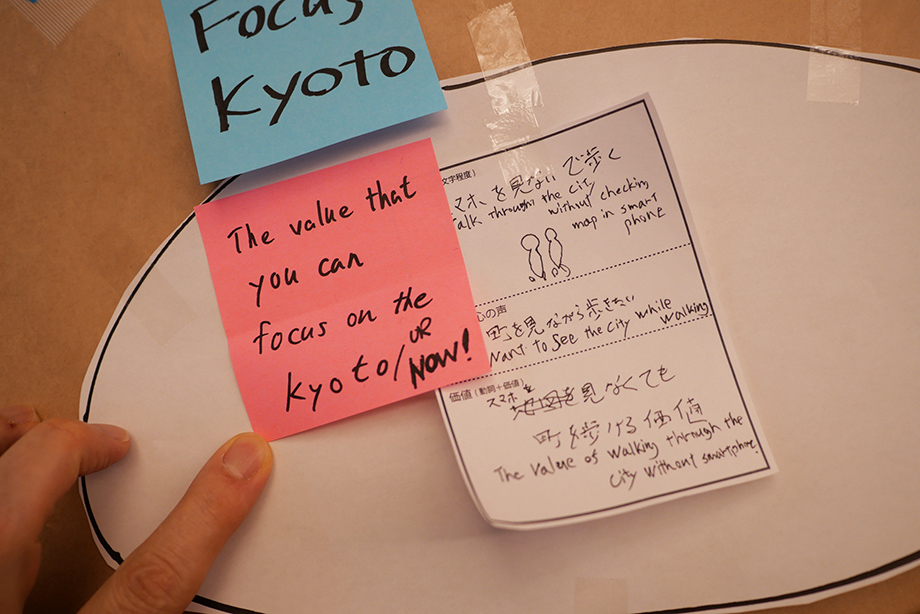 Focus
Kyoto
The value that
you can
focus on the
kyoto/OR
NOW!
文字程度)
スマホを見ないで歩く
Walk through the city
without checking
map in smart
phone
心の声
町を見ながら歩きたい
Want to see the city while walking
価値(動詞+価値)
スマホを
地図を見なくても
町を歩ける価値
The value of walking through the
city without smartphone.